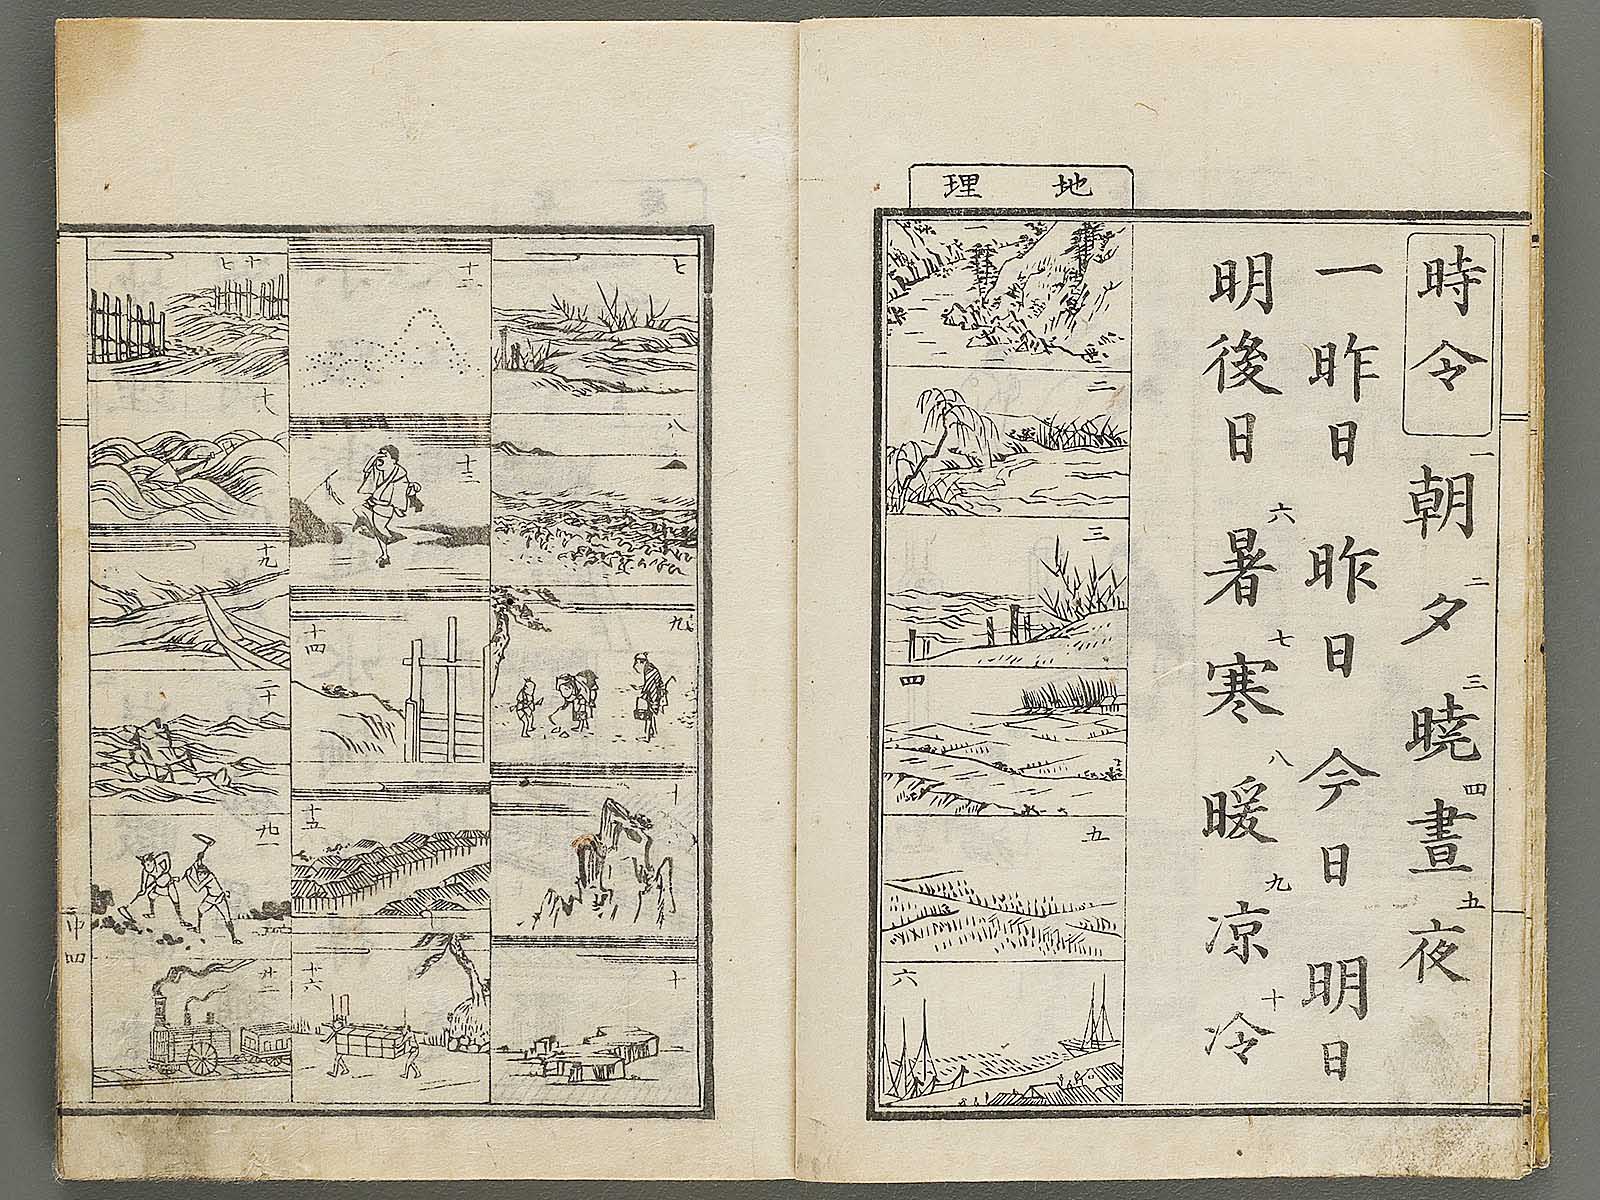 時令
一朝 二夕 三曉 四晝 五夜
一昨日 昨日 今日 明日
明後日 六暑 七寒 八暖 九凉 十冷
地理
二
三
四
五
六
七
八
九
十
十二
十三
十四
十五
十六
十七
十八
十九
二十
廿一
廿二